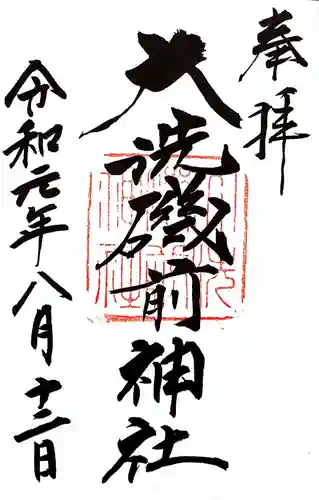 奉拝
大洗磯前神社
令和元年八月十三日